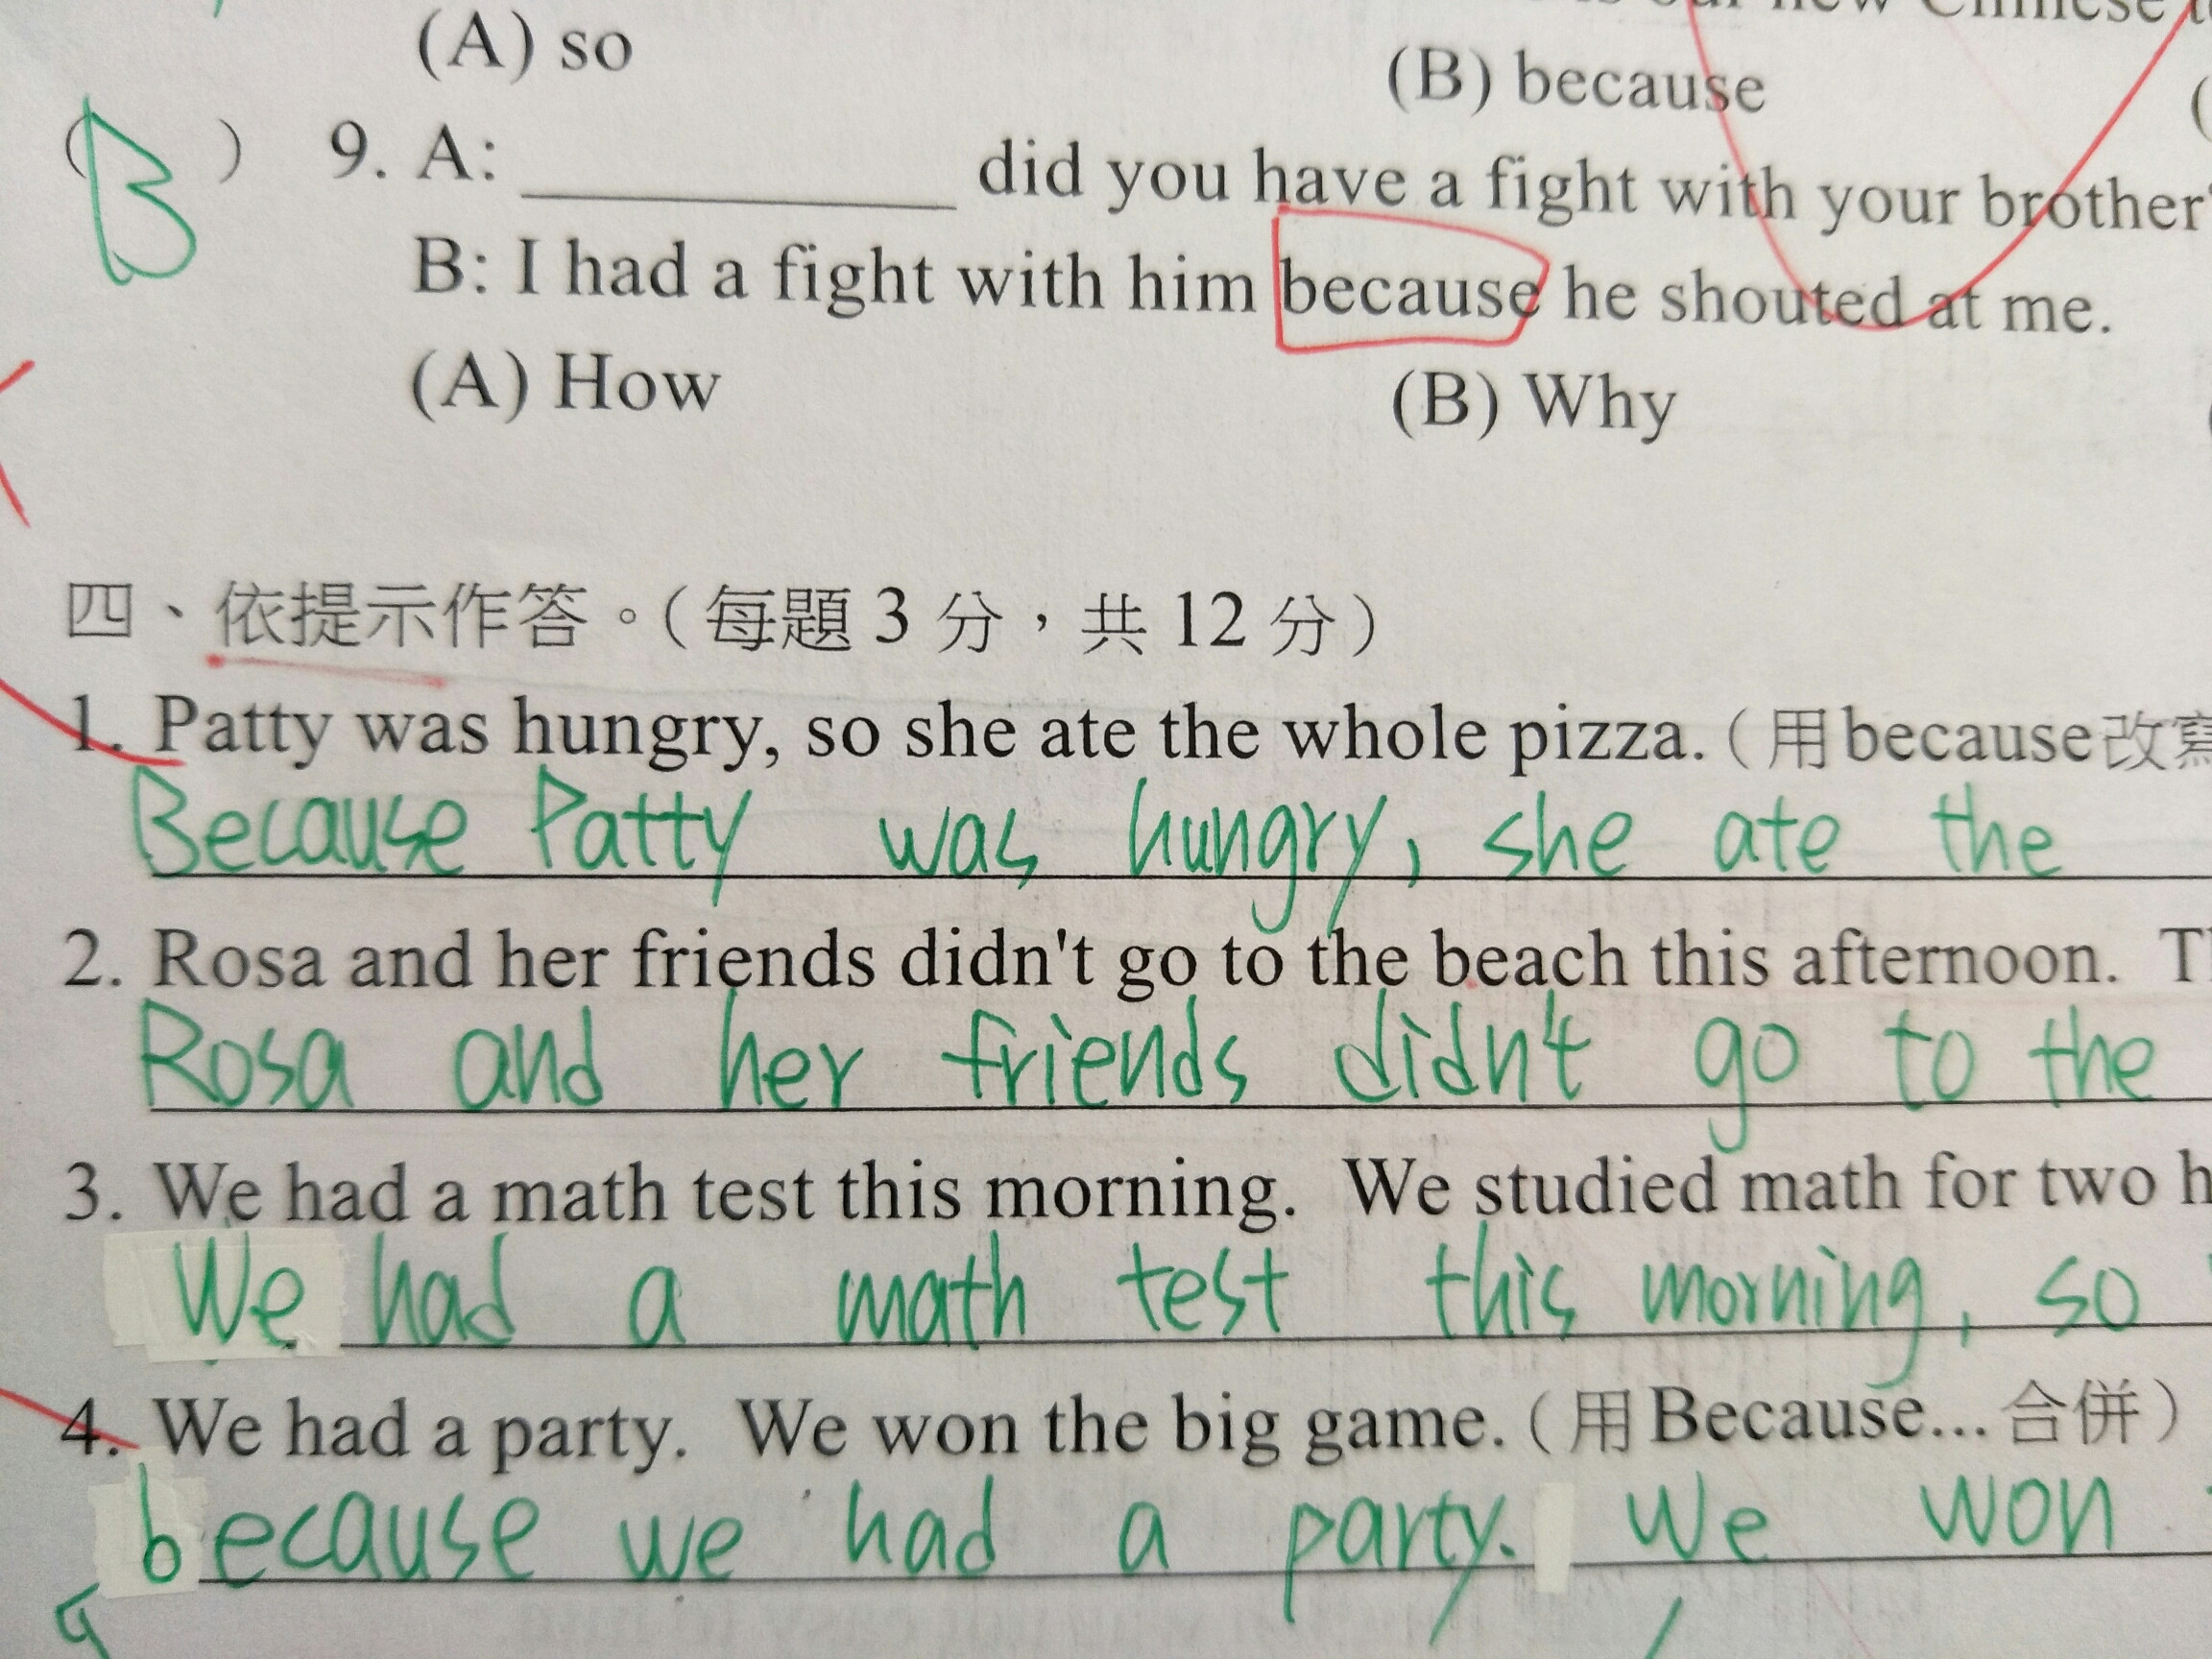 our new Chinese
(A) so (B) because (
(B) 9. A: ____________ did you have a fight with your brother
B: I had a fight with him because he shouted at me.
(A) How (B) Why
四、依提示作答。(每題 3 分，共 12 分)
1. Patty was hungry, so she ate the whole pizza. (用because改寫
Because Patty was hungry, she ate the
2. Rosa and her friends didn't go to the beach this afternoon.
Rosa and her friends didn't go to the
3. We had a math test this morning. We studied math for two
We had a math test this morning, so
4. We had a party. We won the big game. (用Because...合併)
because we had a party. We won